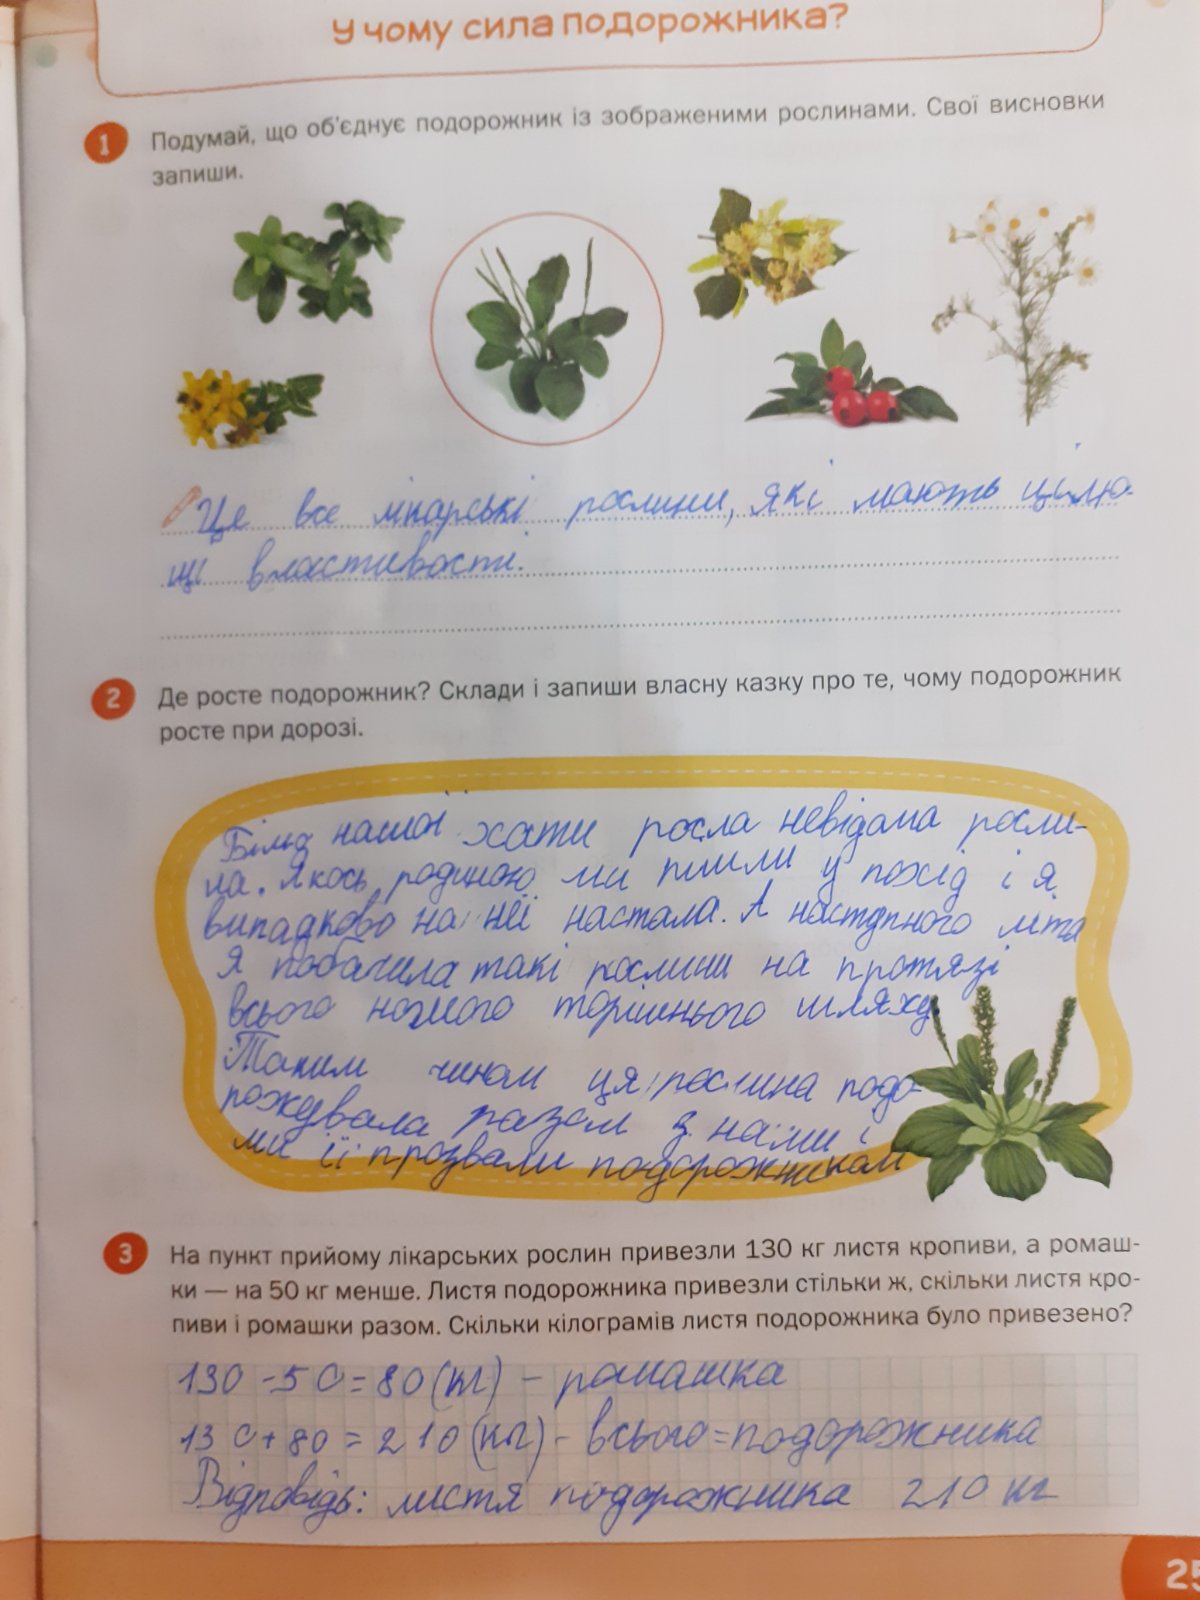 У чому сила подорожника?
1
Подумай, що об'єднує подорожник із зображеними рослинами. Свої висновки
запиши.
Це все лікарські рослини, які мають цілю-
щі властивості.
2
Де росте подорожник? Склади і запиши власну казку про те, чому подорожник
росте при дорозі.
Біля нашої хати росла невідома росли-
на. Якось родиною ми пішли у похід і я
випадково на неї настала. А наступного літа
я побачила такі рослини на протязі
всього нашого торішнього шляху.
Таким чином ця рослина подо-
рожувала разом з нами і
ми її прозвали подорожником
3
На пункт прийому лікарських рослин привезли 130 кг листя кропиви, а ромаш-
ки — на 50 кг менше. Листя подорожника привезли стільки ж, скільки листя кро-
пиви і ромашки разом. Скільки кілограмів листя подорожника було привезено?
130 - 50 = 80 (кг) - ромашка
130 + 80 = 210 (кг) - всього = подорожника
Відповідь: листя подорожника 210 кг
25